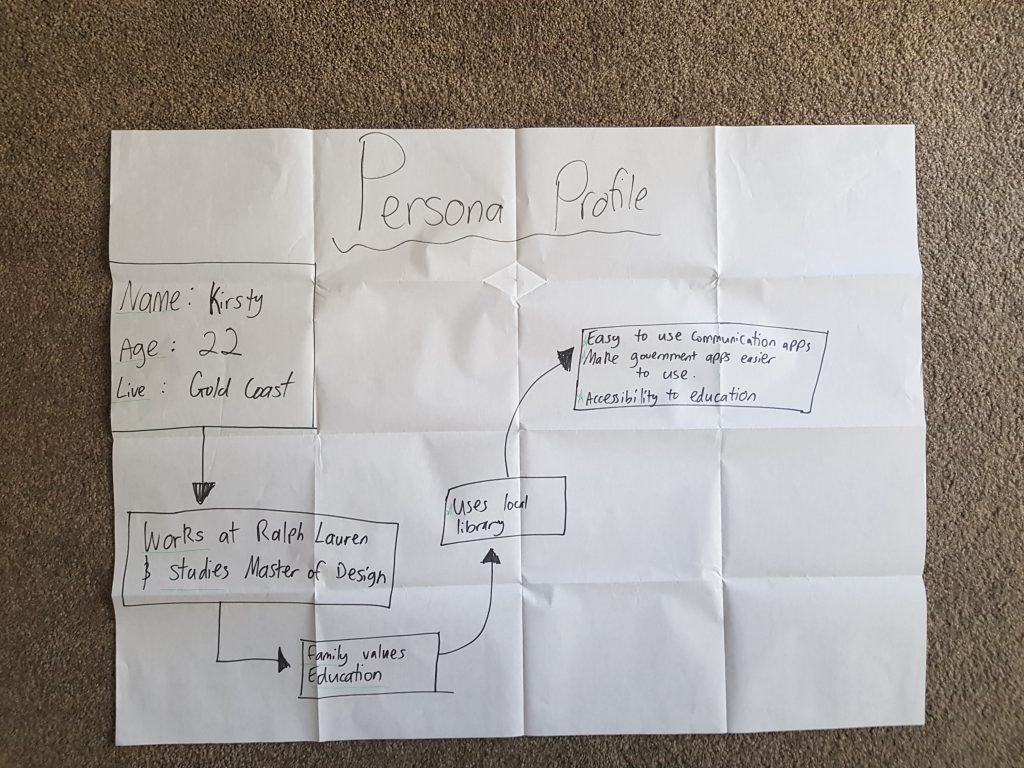 Persona Profile
Name: Kirsty
Age: 22
Live: Gold Coast
Works at Ralph Lauren
& studies Master of Design
Family values
Education
Uses local
library
Easy to use communication apps
Make government apps easier
to use.
Accessibility to education